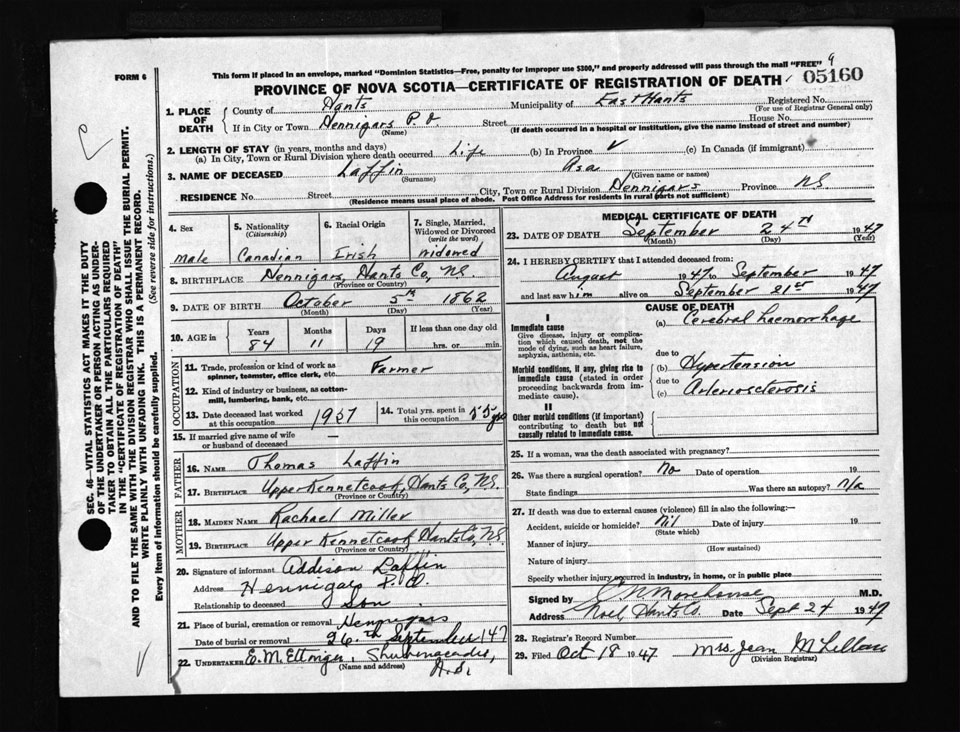 FORM 6
This form if placed in an envelope, marked "Dominion Statistics—Free, penalty for improper use $300," and properly addressed will pass through the mail "FREE" 9
PROVINCE OF NOVA SCOTIA—CERTIFICATE OF REGISTRATION OF DEATH 05160
SEC. 46—VITAL STATISTICS ACT MAKES IT THE DUTY
OF THE UNDERTAKER OR PERSON ACTING AS UNDER-
TAKER TO OBTAIN ALL THE PARTICULARS REQUIRED
IN THE "CERTIFICATE OF REGISTRATION OF DEATH"
AND TO FILE THE SAME WITH THE DIVISION REGISTRAR WHO SHALL ISSUE THE BURIAL PERMIT.
WRITE PLAINLY WITH UNFADING INK. THIS IS A PERMANENT RECORD.
Every item of information should be carefully supplied. (See reverse side for instructions.)
1. PLACE OF DEATH
County of Hants Municipality of East Hants Registered No.
(For use of Registrar General only)
If in City or Town Hennigars P.O. Street House No.
(Name) (If death occurred in a hospital or institution, give the name instead of street and number)
2. LENGTH OF STAY (in years, months and days)
(a) In City, Town or Rural Division where death occurred Life (b) In Province ✓ (c) In Canada (if immigrant)
3. NAME OF DECEASED Laffin Asa
(Surname) (Given name or names)
RESIDENCE No. Street City, Town or Rural Division Hennigars Province NS
(Residence means usual place of abode. Post Office Address for residents in rural parts not sufficient)
4. Sex Male
5. Nationality (Citizenship) Canadian
6. Racial Origin Irish
7. Single, Married, Widowed or Divorced (write the word) Widowed
8. BIRTHPLACE Hennigars, Hants Co, N.S.
(Province or Country)
9. DATE OF BIRTH October 5th 1862
(Month) (Day) (Year)
10. AGE in Years Months Days If less than one day old
84 11 19 hrs. or min.
OCCUPATION
11. Trade, profession or kind of work as spinner, teamster, office clerk, etc. Farmer
12. Kind of industry or business, as cotton-mill, lumbering, bank, etc.
13. Date deceased last worked at this occupation 1937
14. Total yrs. spent in this occupation 55 yrs
15. If married give name of wife or husband of deceased —
FATHER
16. NAME Thomas Laffin
17. BIRTHPLACE Upper Kennetcook, Hants Co, N.S.
(Province or Country)
MOTHER
18. MAIDEN NAME Rachael Miller
19. BIRTHPLACE Upper Kennetcook Hants Co, N.S.
(Province or Country)
20. Signature of informant Addison Laffin
Address Hennigars P.O.
Relationship to deceased Son
21. Place of burial, cremation or removal Hennigars
Date of burial or removal 26th September 1947
22. UNDERTAKER E. M. Ettinger, Shubenacadie, N.S.
(Name and address)
MEDICAL CERTIFICATE OF DEATH
23. DATE OF DEATH September 24th 1947
(Month) (Day) (Year)
24. I HEREBY CERTIFY that I attended deceased from:
August 1947 to September 1947
and last saw him alive on September 21st 1947
CAUSE OF DEATH
I
Immediate cause
Give disease, injury or complication which caused death, not the mode of dying, such as heart failure, asphyxia, asthenia, etc.
(a) Cerebral haemorrhage
due to
Morbid conditions, if any, giving rise to immediate cause (stated in order proceeding backwards from immediate cause).
(b) Hypertension
due to
(c) Arteriosclerosis
II
Other morbid conditions (if important) contributing to death but not causally related to immediate cause.
25. If a woman, was the death associated with pregnancy?
26. Was there a surgical operation? No Date of operation 19
State findings Was there an autopsy? N/a
27. If death was due to external causes (violence) fill in also the following:—
Accident, suicide or homicide? Nil Date of injury 19
(State which)
Manner of injury
(How sustained)
Nature of injury
Specify whether injury occurred in industry, in home, or in public place
Signed by Morehouse M.D.
Address Noel, Hants Co. Date Sept 24 1947
28. Registrar's Record Number
29. Filed Oct 18 1947 Mrs. Jean
(Division Registrar)